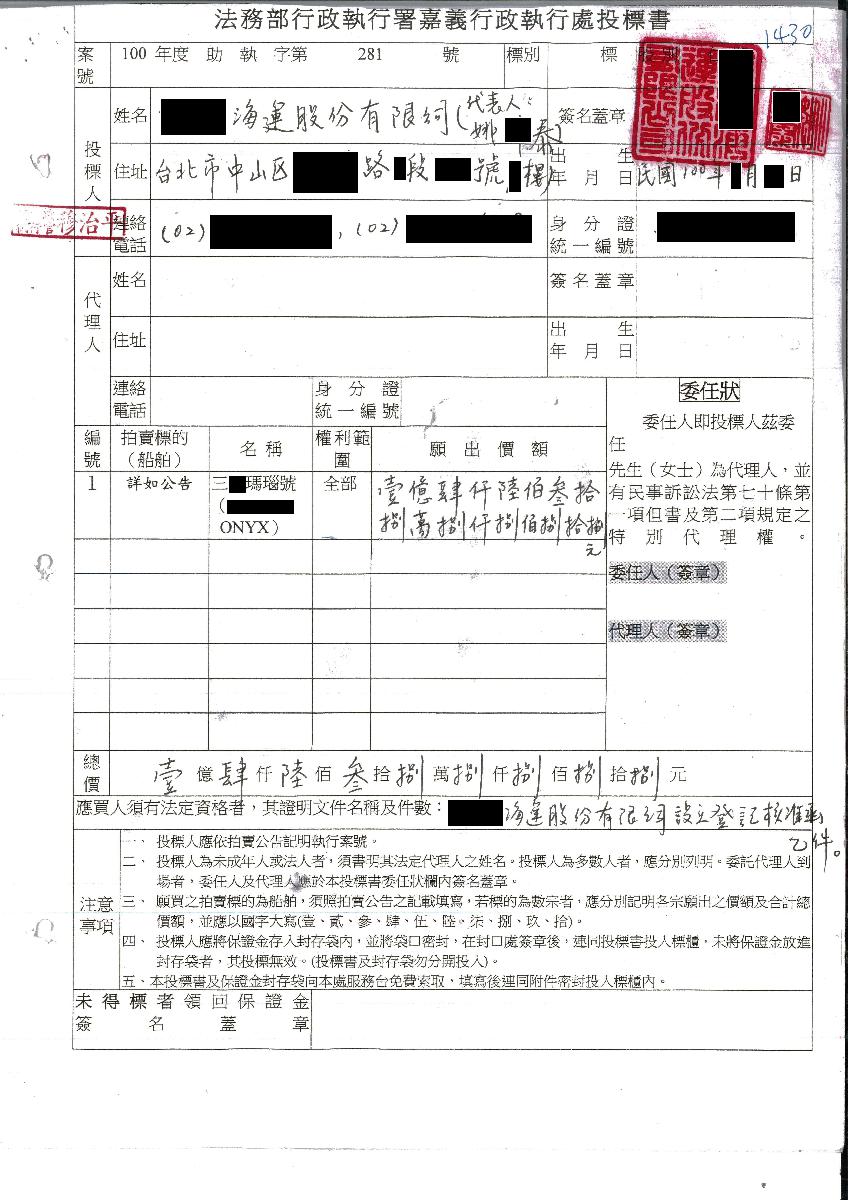 法務部行政執行署嘉義行政執行處投標書
1430
案號 100 年度 助 執 字第 281 號 標別 標
投標人
姓名 海運股份有限公司(代表人:姚 泰) 簽名蓋章
住址 台北市中山区 路 段 號 樓 出生年月日 民國100年 月 日
穆治平
連絡電話 (02) , (02) 身分證統一編號
代理人
姓名 簽名蓋章
住址 出生年月日
連絡電話 身分證統一編號
委任狀
委任人即投標人茲委
任
先生(女士)為代理人,並
有民事訴訟法第七十條第
一項但書及第二項規定之
特別代理權。
委任人(簽章)
代理人(簽章)
編號 拍賣標的(船舶) 名稱 權利範圍 願出價額
1 詳如公告 三 瑪瑙號 ( ONYX) 全部 壹億肆仟陸佰叁拾
捌萬捌仟捌佰捌拾捌
元
總價 壹億肆仟陸佰叁拾捌萬捌仟捌佰捌拾捌元
應買人須有法定資格者,其證明文件名稱及件數: 海運股份有限公司設立登記核准函
乙件。
注意事項
一、投標人應依拍賣公告記明執行案號。
二、投標人為未成年人或法人者,須書明其法定代理人之姓名。投標人為多數人者,應分別列明。委託代理人到
場者,委任人及代理人應於本投標書委任狀欄內簽名蓋章。
三、願買之拍賣標的為船舶,須照拍賣公告之記載填寫,若標的為數宗者,應分別記明各宗願出之價額及合計總
價額,並應以國字大寫(壹、貳、參、肆、伍、陸。柒、捌、玖、拾)。
四、投標人應將保證金存入封存袋內,並將袋口密封,在封口處簽章後,連同投標書投人標櫃,未將保證金放進
封存袋者,其投標無效。(投標書及封存袋勿分開投入)。
五、本投標書及保證金封存袋向本處服務台免費索取、填寫後連同附件密封投人標櫃內。
未得標者領回保證金
簽名蓋章